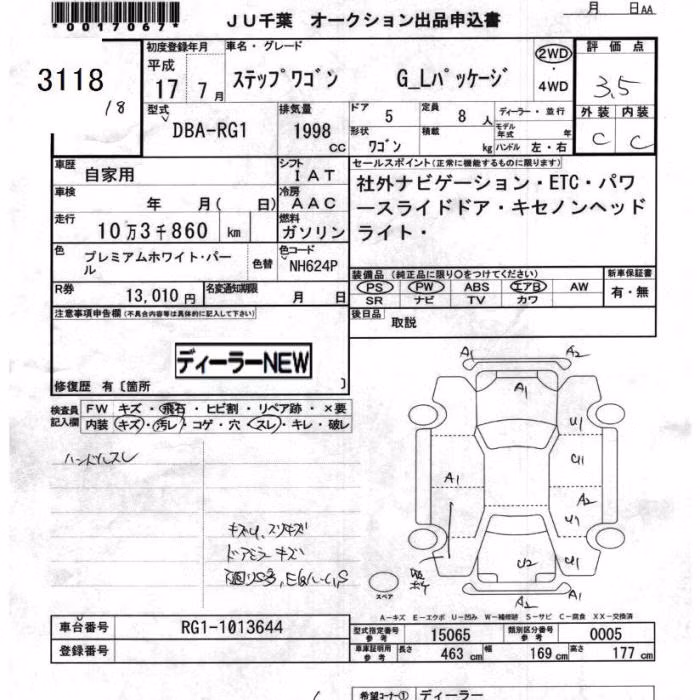 *0017067*
JU千葉 オークション出品申込書
月 日AA
3118
18
初度登録年月
平成
17 7月
車名・グレード
ステップワゴン G_Lパッケージ
2WD
・
4WD
評価点
3.5
外装 内装
C C
型式
DBA-RG1
排気量
1998
CC
ドア 5
定員 8人
形状 ワゴン
積載 kg
ディーラー・並行
モデル年式 年
ハンドル 左・右
車歴
自家用
シフト
IAT
車検
年 月( 日)
冷房
AAC
走行
10万3千860 km
燃料
ガソリン
色
プレミアムホワイト・パール
色替
色コード
NH624P
R券
13,010円
名変通知期限
月 日
セールスポイント(正常に機能するものに限ります)
社外ナビゲーション・ETC・パワ
ースライドドア・キセノンヘッド
ライト・
装備品(純正品に限り○をつけてください)
PS PW ABS エアB AW
SR ナビ TV カワ
新車保証書
有・無
後日品
取説
注意事項申告欄(不具合内容等は具体的に記入して下さい)
ディーラーNEW
修復歴 有〔箇所 〕
検査員
記入欄
FW キズ・飛石・ヒビ割・リペア跡・×要
内装 キズ・汚レ・コゲ・穴・スレ・キレ・破レ
ハンドルスレ
ドアミラーキズ
A1 A2
A1
U1
A1
A2
U1
U2
U1
A2
A2
スペア
A-キズ E-エクボ U-凹み W-補修跡 S-サビ C-腐食 XX-交換済
車台番号
RG1-1013644
登録番号
型式指定番号
参考
15065
類別区分番号
参考
0005
車庫証明用
参考
長さ 463 cm
幅 169 cm
高さ 177 cm
希望コーナー①
ディーラー